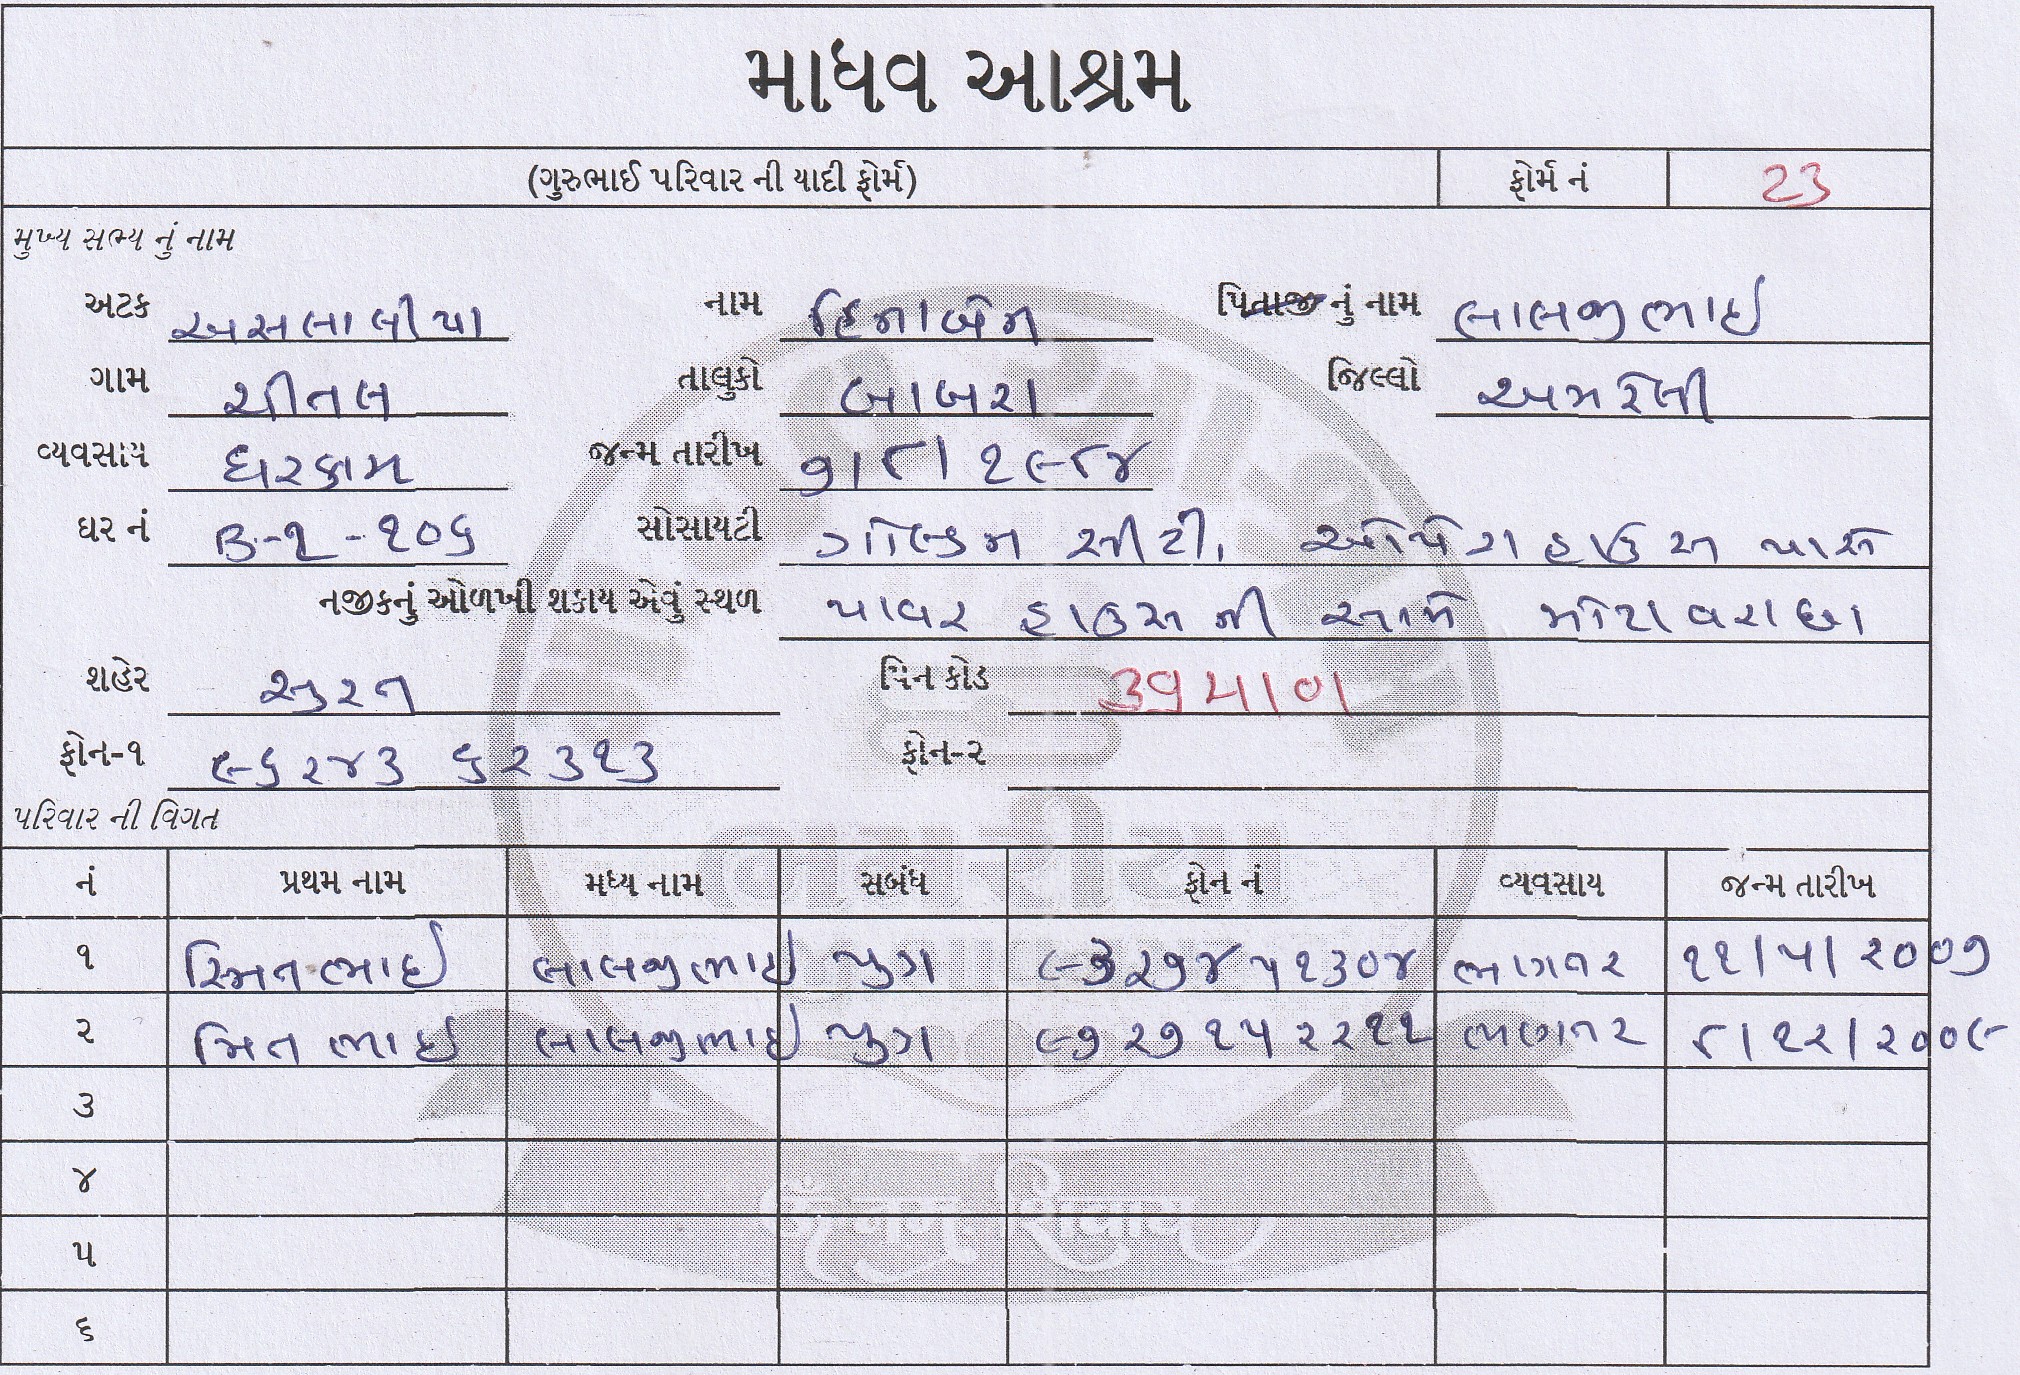 માધવ આશ્રમ
(ગુરુભાઈ પરિવાર ની યાદી ફોર્મ) ફોર્મ નં 23
મુખ્ય સભ્ય નું નામ
અટક અસલાલીયા નામ હિનાબેન પિતાજી નું નામ લાલજીભાઈ
ગામ ચીતલ તાલુકો બાબરા જિલ્લો અમરેલી
વ્યવસાય ઘરકામ જન્મ તારીખ ૭/૮/૧૯૮૪
ઘર નં B-૧-૧૦૬ સોસાયટી ગોલ્ડન સીટી, ઓપેરા હાઉસ પાસે
નજીકનું ઓળખી શકાય એવું સ્થળ પાવર હાઉસ ની સામે મોટાવરાછા
શહેર સુરત પિન કોડ
ફોન-૧ ૯૬૨૪૩ ૬૨૩૧૩ ફોન-૨
પરિવાર ની વિગત
નં પ્રથમ નામ મધ્ય નામ સબંધ ફોન નં વ્યવસાય જન્મ તારીખ
૧ સ્મિતભાઈ લાલજીભાઈ પુત્ર ભાગતર ૧૧/૫/૨૦૦૭
૨ મિતભાઈ લાલજીભાઈ પુત્ર ૯૭૨૭૧૫૨૨૧૧ ભણતર ૮/૧૨/૨૦૦૯
૩
૪
૫
૬